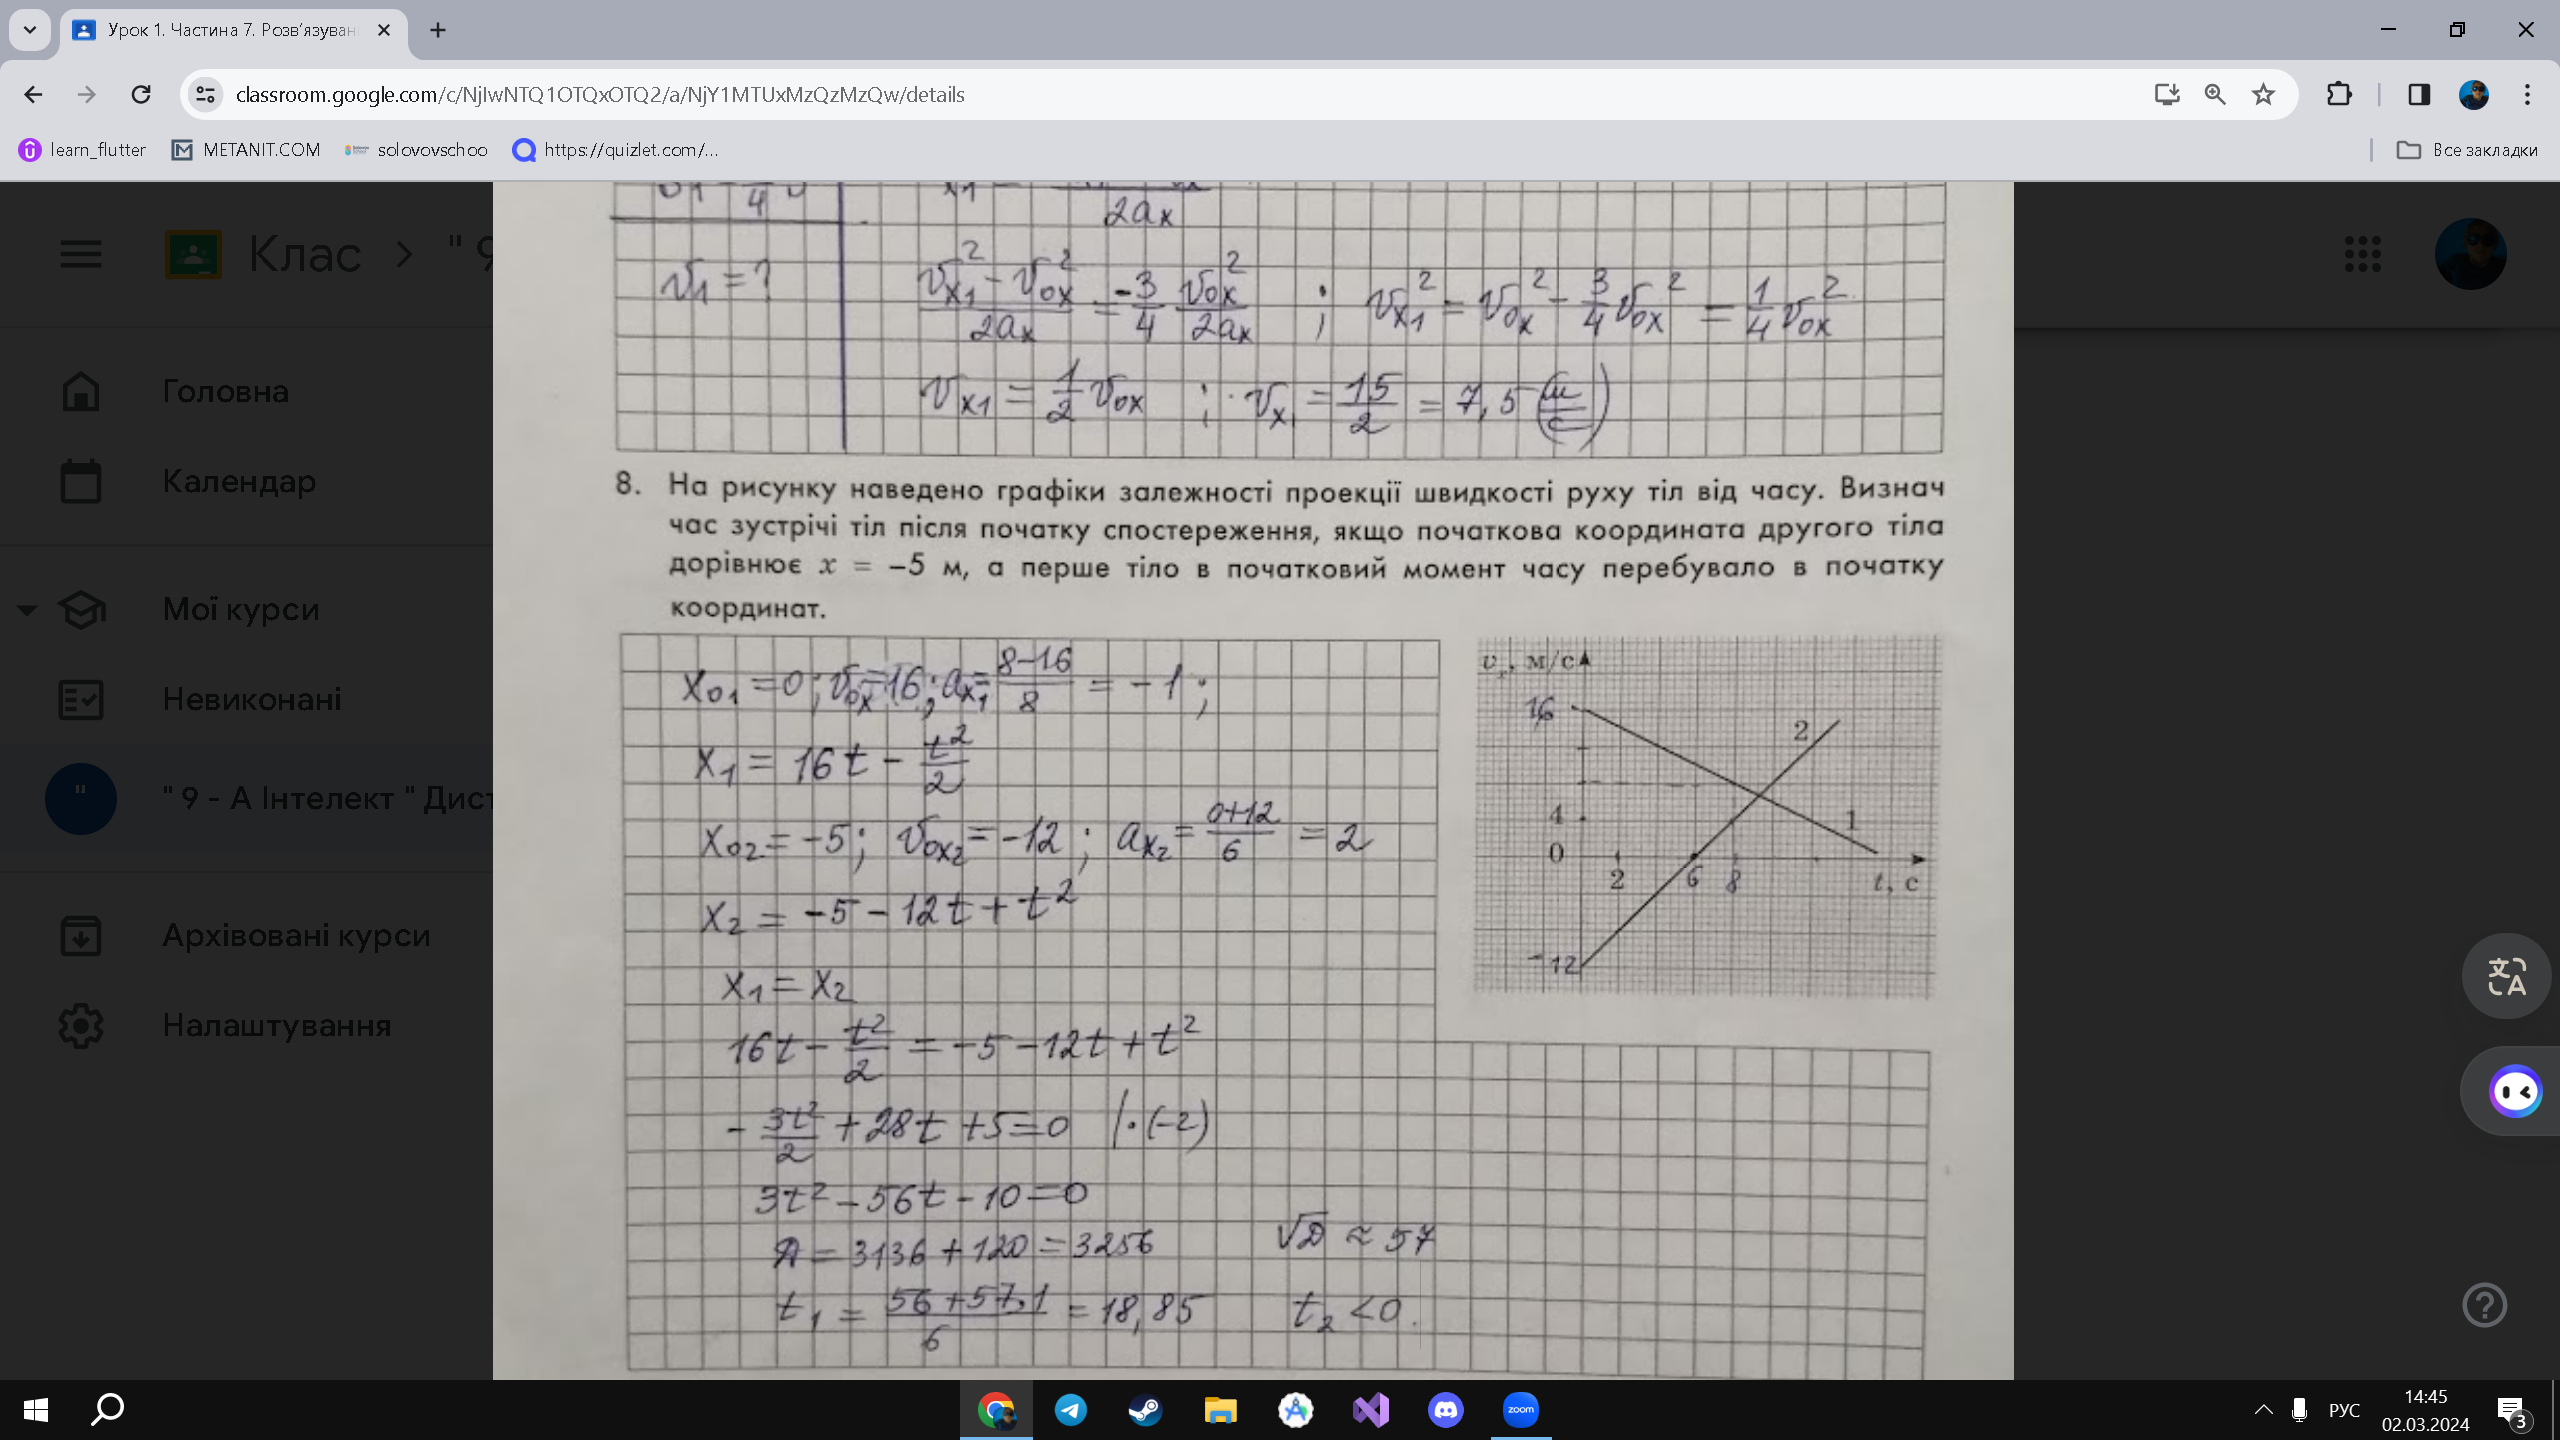 Урок 1. Частина 7. Розв'язуван
classroom.google.com/c/NjIwNTQ1OTQxOTQ2/a/NjY1MTUxMzQzMzQw/details
learn_flutter METANIT.COM solovovschoo https://quizlet.com/... Все закладки
Клас > " 9
Головна
Календар
Мої курси
Невиконані
" " 9 - А Інтелект " Дист
Архівовані курси
Налаштування
4
2ax
v1 = ?
vx1² - v0x² / 2ax = -3/4 v0x² / 2ax ; vx1² = v0x² - 3/4 v0x² = 1/4 v0x²
vx1 = 1/2 v0x ; vx1 = 15/2 = 7,5 (м/с)
8. На рисунку наведено графіки залежності проекції швидкості руху тіл від часу. Визнач
час зустрічі тіл після початку спостереження, якщо початкова координата другого тіла
дорівнює x = –5 м, а перше тіло в початковий момент часу перебувало в початку
координат.
x01 = 0 ; v0x = 16 ; ax1 = 8-16/8 = -1 ;
x1 = 16t - t²/2
x02 = -5 ; v0x2 = -12 ; ax2 = 0+12/6 = 2
x2 = -5 - 12t + t²
x1 = x2
16t - t²/2 = -5 - 12t + t²
- 3t²/2 + 28t + 5 = 0 | · (-2)
3t² - 56t - 10 = 0
Д = 3136 + 120 = 3256 √D ≈ 57
t1 = 56+57,1/6 = 18,85 t2 < 0.
vx, м/с
16
2
4
1
0
2 6 8 t, с
-12
zoom
РУС
14:45
02.03.2024
3